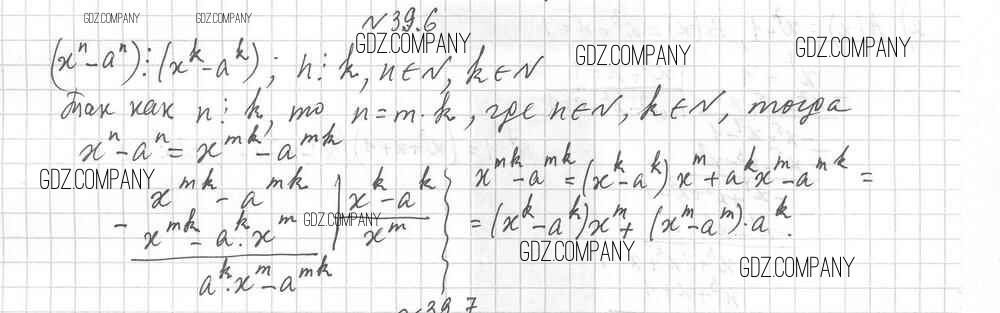 GDZ.COMPANY GDZ.COMPANY №39.6
GDZ.COMPANY GDZ.COMPANY GDZ.COMPANY
(xⁿ-aⁿ)⋮(xᵏ-aᵏ); n⋮k, n∈N, k∈N
Так как n⋮k, то n=m·k, где n∈N, k∈N, тогда
xⁿ-aⁿ = xᵐᵏ-aᵐᵏ
GDZ.COMPANY
xᵐᵏ - aᵐᵏ | xᵏ-aᵏ
- xᵐᵏ - aᵏ·xᵐ | xᵐ
GDZ.COMPANY
aᵏ·xᵐ-aᵐᵏ
xᵐᵏ-aᵐᵏ = (xᵏ-aᵏ)xᵐ+aᵏxᵐ-aᵐᵏ =
= (xᵏ-aᵏ)xᵐ+(xᵐ-aᵐ)·aᵏ.
GDZ.COMPANY GDZ.COMPANY
№39.7